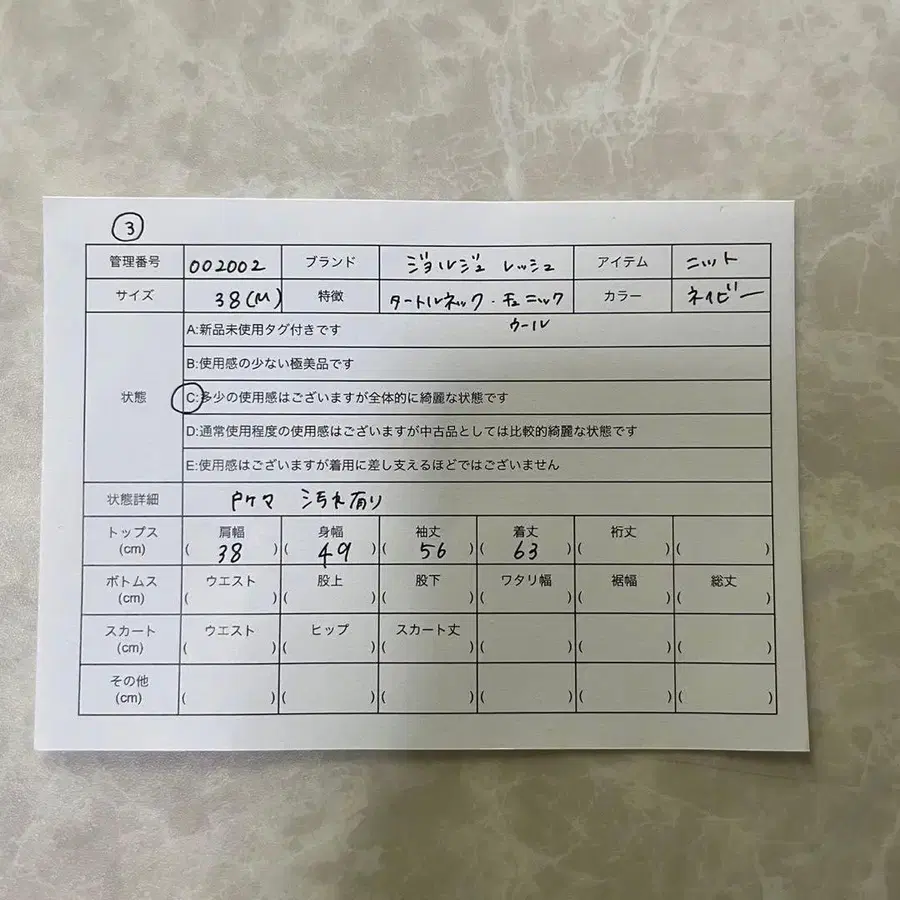 ③
管理番号 002002 ブランド ジョルジュ レッシュ アイテム ニット
サイズ 38(M) 特徴 タートルネック・チュニック カラー ネイビー
ウール
A:新品未使用タグ付きです
B:使用感の少ない極美品です
状態 C:多少の使用感はございますが全体的に綺麗な状態です
D:通常使用程度の使用感はございますが中古品としては比較的綺麗な状態です
E:使用感はございますが着用に差し支えるほどではございません
状態詳細 汚れ有り
トップス 肩幅 身幅 袖丈 着丈 裄丈
(cm) ( 38 ) ( 49 ) ( 56 ) ( 63 ) ( ) ( )
ボトムス ウエスト 股上 股下 ワタリ幅 裾幅 総丈
(cm) ( ) ( ) ( ) ( ) ( ) ( )
スカート ウエスト ヒップ スカート丈
(cm) ( ) ( ) ( ) ( ) ( ) ( )
その他
(cm) ( ) ( ) ( ) ( ) ( ) ( )